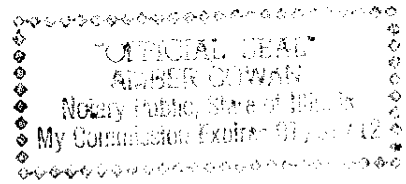 "OFFICIAL SEAL"
AMBER COWAN
Notary Public, State of Illinois
My Commission Expires 12